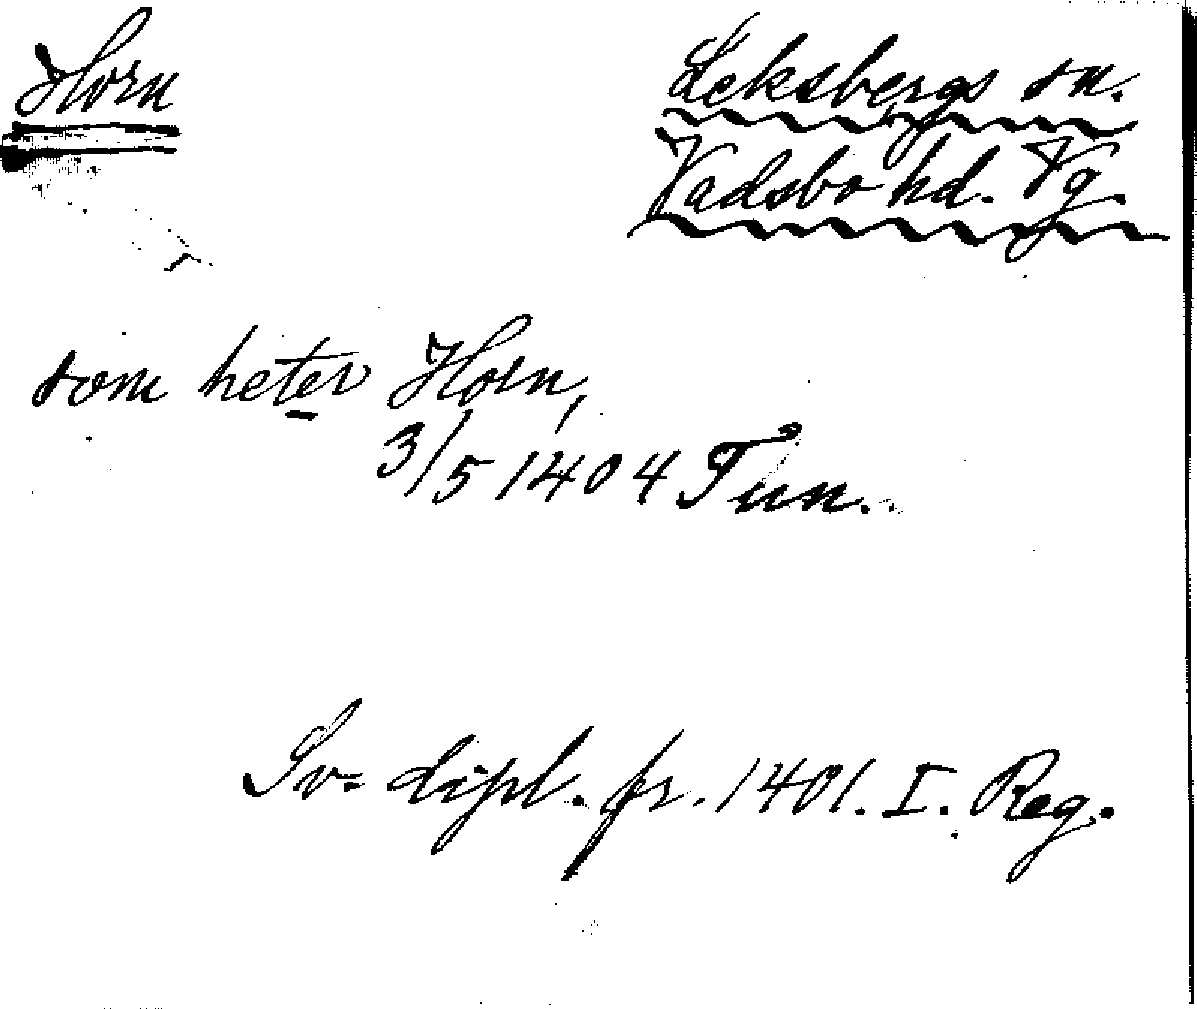 Horn
Leksbergs sn.
Vadsbo hd. Vg.
som heter Horn,
3/5 1404 Tun.
Sv. dipl. fr. 1401. I. Reg.